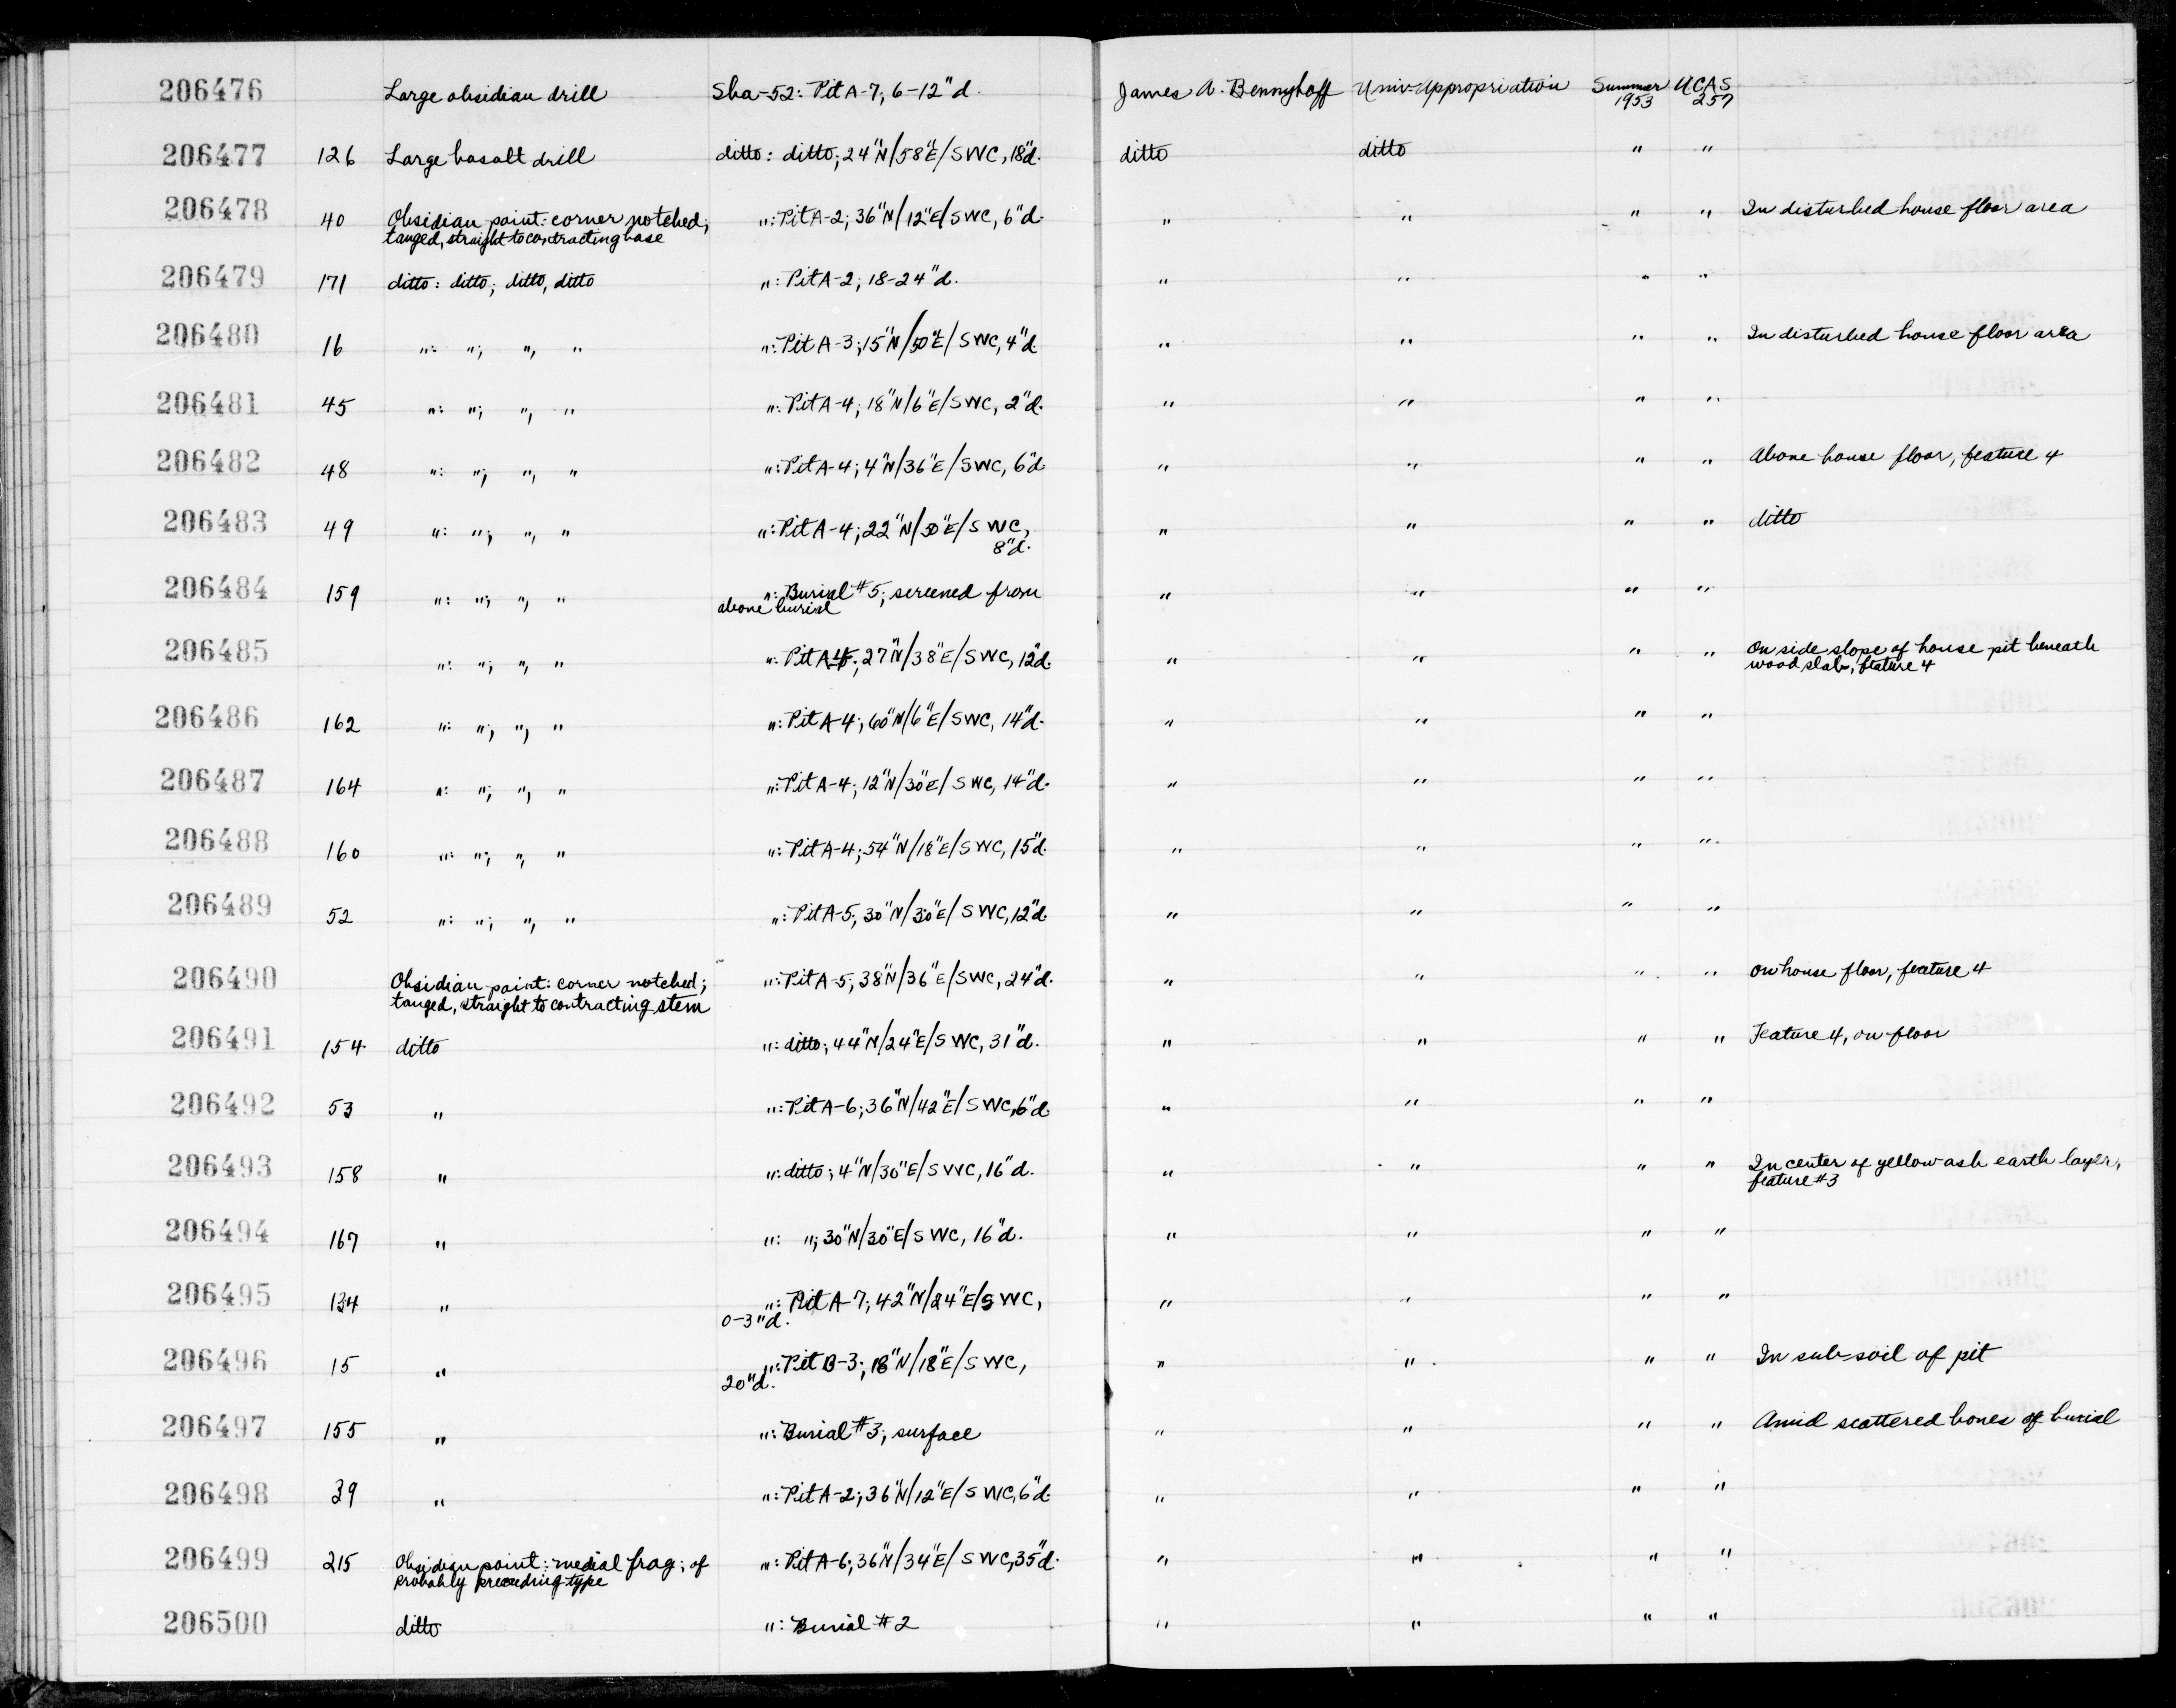 206476 Large obsidian drill Sha-52: Pit A-7, 6-12"d. James A. Bennyhoff Univ. Appropriation Summer 1953 UCAS 257
206477 126 Large basalt drill ditto: ditto; 24"N/58"E/SWC, 18"d. ditto ditto " "
206478 40 Obsidian point: corner notched; ": Pit A-2; 36"N/12"E/SWC, 6"d. " " " " In disturbed house floor area
tanged, straight to contracting base
206479 171 ditto: ditto; ditto, ditto ": Pit A-2; 18-24"d. " " " "
206480 16 ": "; ", " ": Pit A-3; 15"N/50"E/SWC, 4"d. " " " " In disturbed house floor area
206481 45 ": "; ", " ": Pit A-4; 18"N/6"E/SWC, 2"d. " " " "
206482 48 ": "; ", " ": Pit A-4; 4"N/36"E/SWC, 6"d. " " " " Above house floor, feature 4
206483 49 ": "; ", " ": Pit A-4; 22"N/30"E/SWC, " " " " ditto
8"d.
206484 159 ": "; ", " ": Burial #5; screened from " " " "
above burial
206485 ": "; ", " ": Pit A4; 27"N/38"E/SWC, 12"d. " " " " On side slope of house pit beneath
wood slab, feature 4
206486 162 ": "; ", " ": Pit A-4; 60"N/6"E/SWC, 14"d. " " " "
206487 164 ": "; ", " ": Pit A-4; 12"N/30"E/SWC, 14"d. " " " "
206488 160 ": "; ", " ": Pit A-4; 54"N/18"E/SWC, 15"d. " " " "
206489 52 ": "; ", " ": Pit A-5; 30"N/30"E/SWC, 12"d. " " " "
206490 Obsidian point: corner notched; ": Pit A-5; 38"N/36"E/SWC, 24"d. " " " " On house floor, feature 4
tanged, straight to contracting stem
206491 154 ditto ": ditto; 44"N/24"E/SWC, 31"d. " " " " Feature 4, on floor
206492 53 " ": Pit A-6; 36"N/42"E/SWC, 6"d. " " " "
206493 158 " ": ditto; 4"N/30"E/SWC, 16"d. " " " " In center of yellow ash earth layer,
feature #3
206494 167 " ": "; 30"N/30"E/SWC, 16"d. " " " "
206495 134 " ": Pit A-7; 42"N/24"E/SWC, " " " "
0-3"d.
206496 15 " ": Pit B-3; 18"N/18"E/SWC, " " " " In sub-soil of pit
20"d.
206497 155 " ": Burial #3; surface " " " " Amid scattered bones of burial
206498 39 " ": Pit A-2; 36"N/12"E/SWC, 6"d. " " " "
206499 215 Obsidian point: medial frag; of ": Pit A-6; 36"N/34"E/SWC, 35"d. " " " "
probably preceding type
206500 ditto ": Burial #2 " " " "